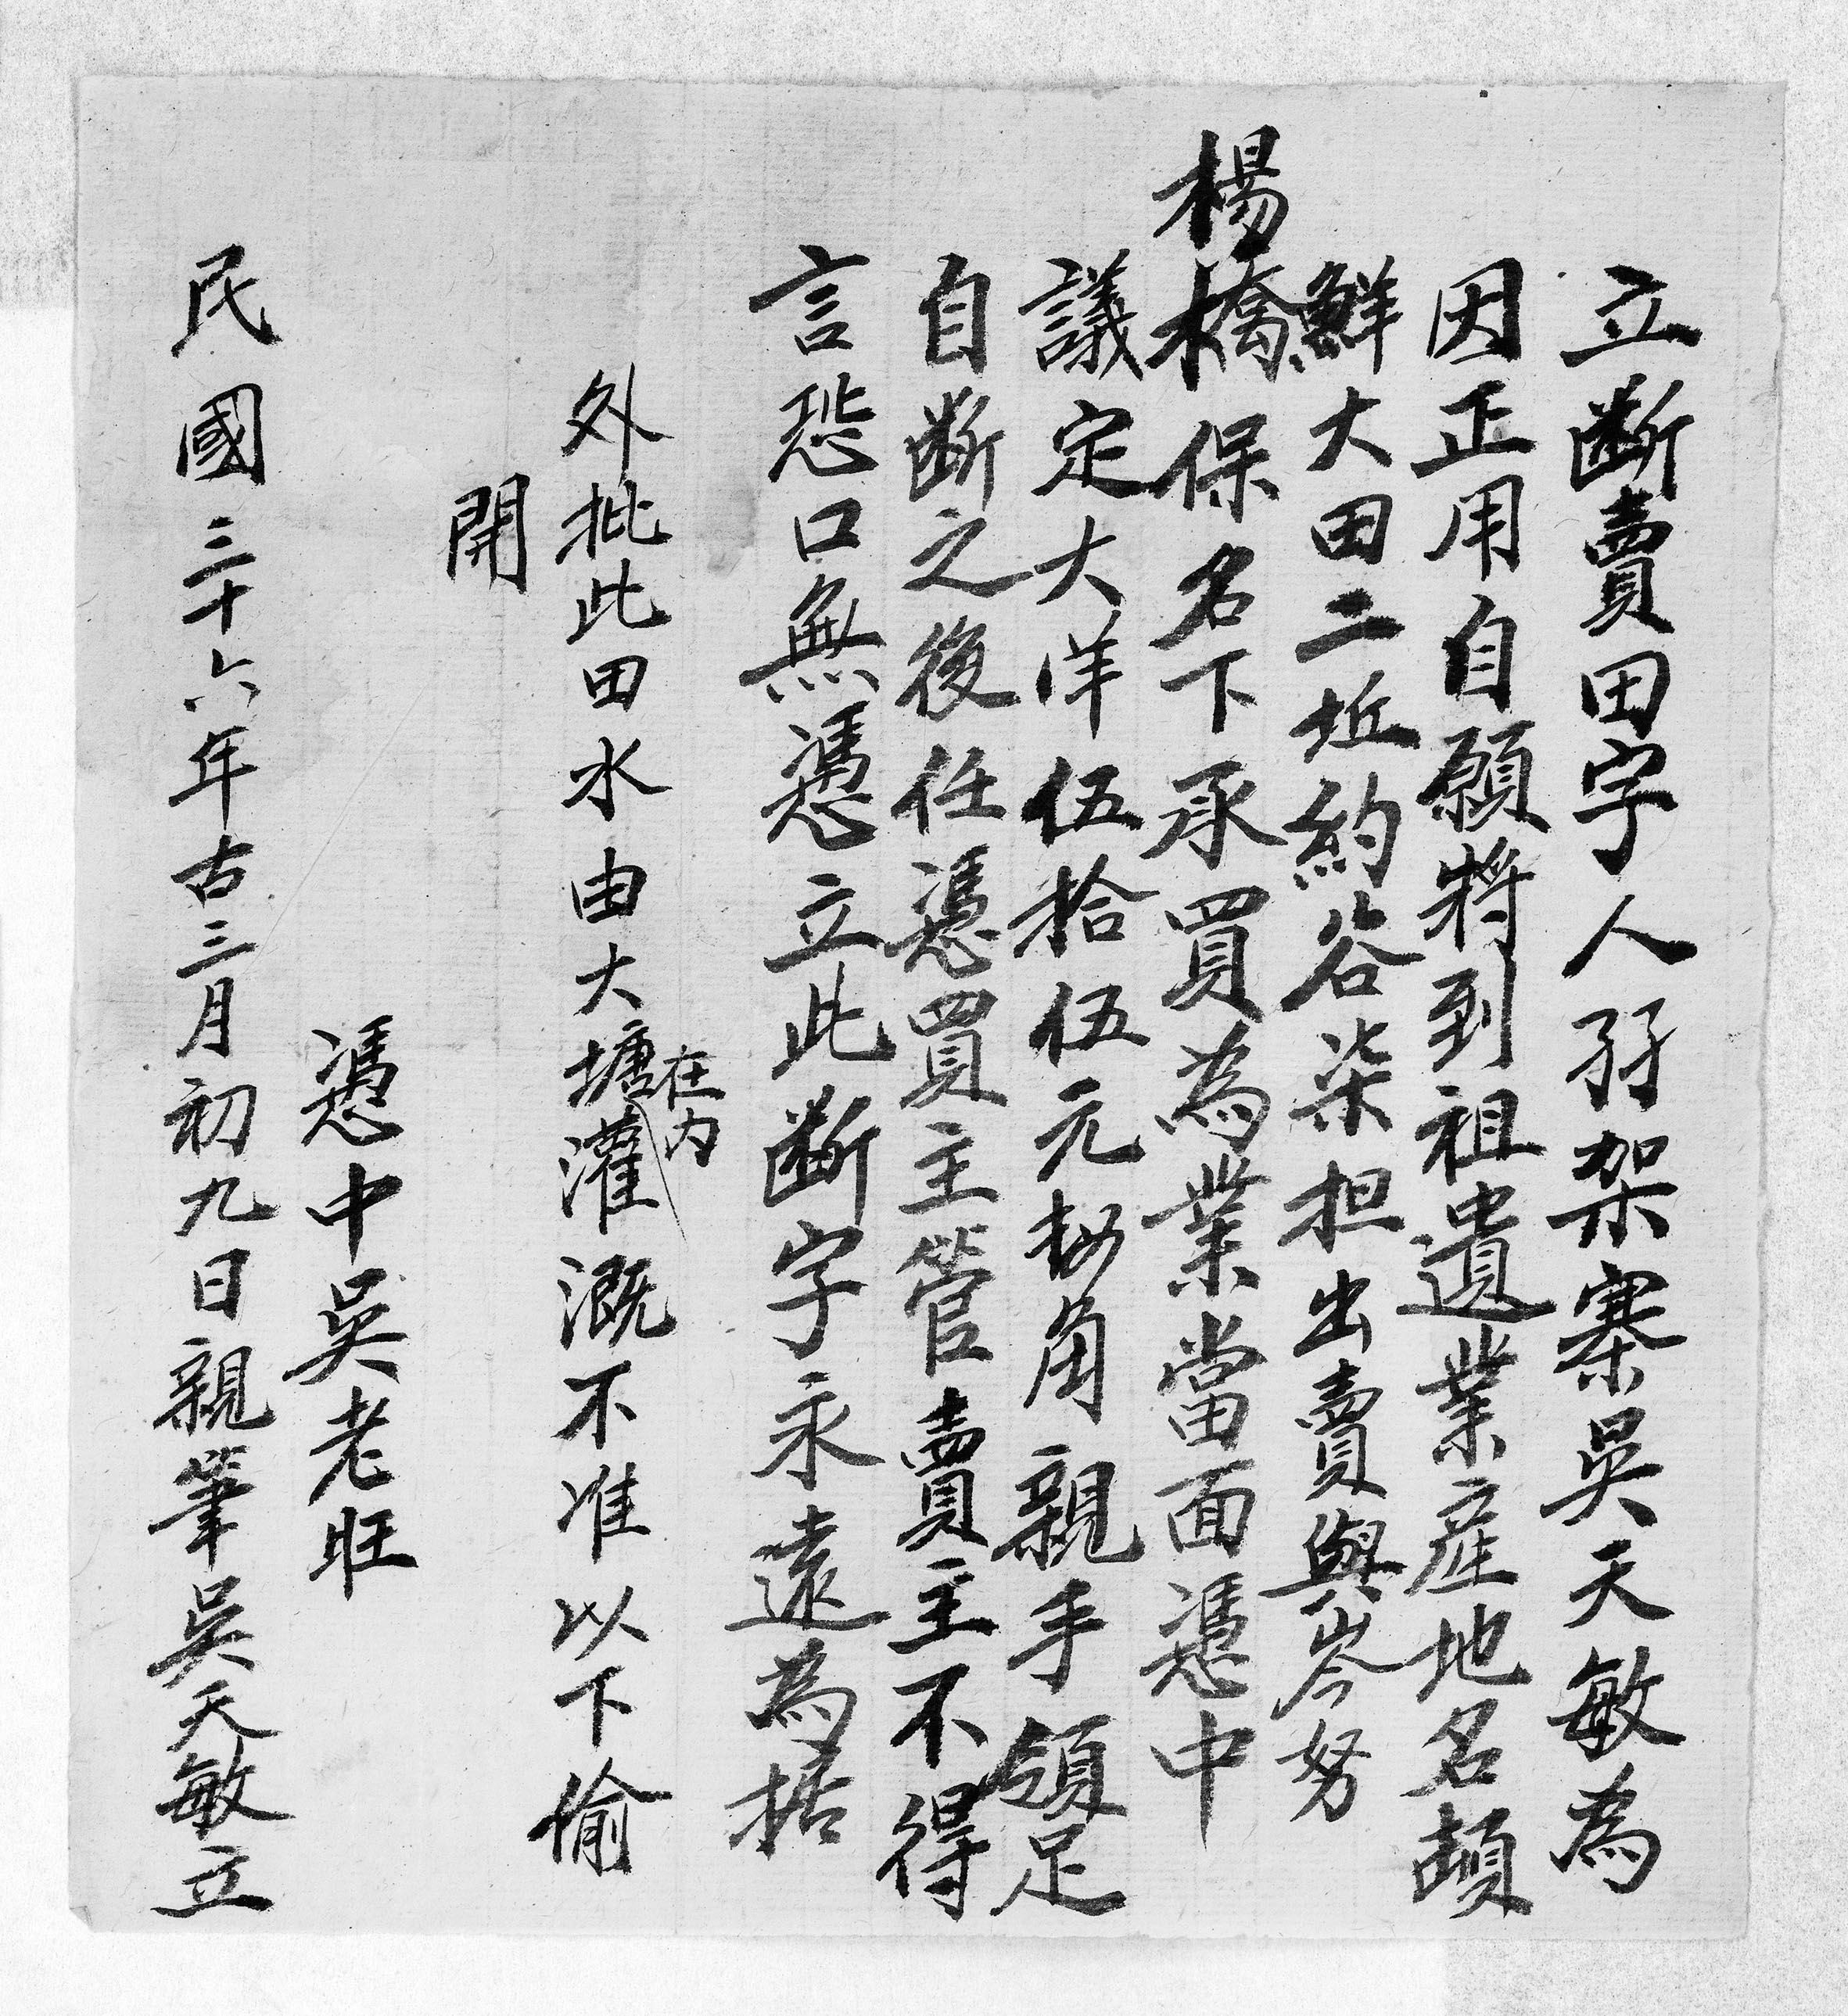 立斷賣田字人孖架寨吳天敏為
因正用自願將到祖遺業產地名頡
鮮大田二坵約谷柒担出賣與岑努
楊橋保名下承買為業當面憑中
議定大洋伍拾伍元捌角親手領足
自斷之後任憑買主管賣主不得
言恐口無憑立此斷字永遠為據
外批此田水由大塘在內灌溉不准以下偷
開
憑中吳老旺
民國三十六年古三月初九日親筆吳天敏立